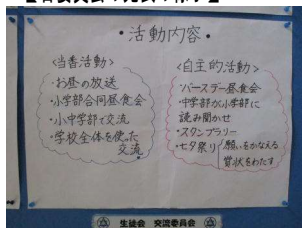 ・活動内容・
<当番活動>
・お昼の放送
・小学部合同昼食会
・小中学部で交流
・学校全体を使った
交流
<自主的活動>
・バースデー昼食会
・中学部が小学部に
読み聞かせ
・スタンプラリー
・七夕祭り
願いをかなえる
賞状をわたす
生徒会 交流委員会